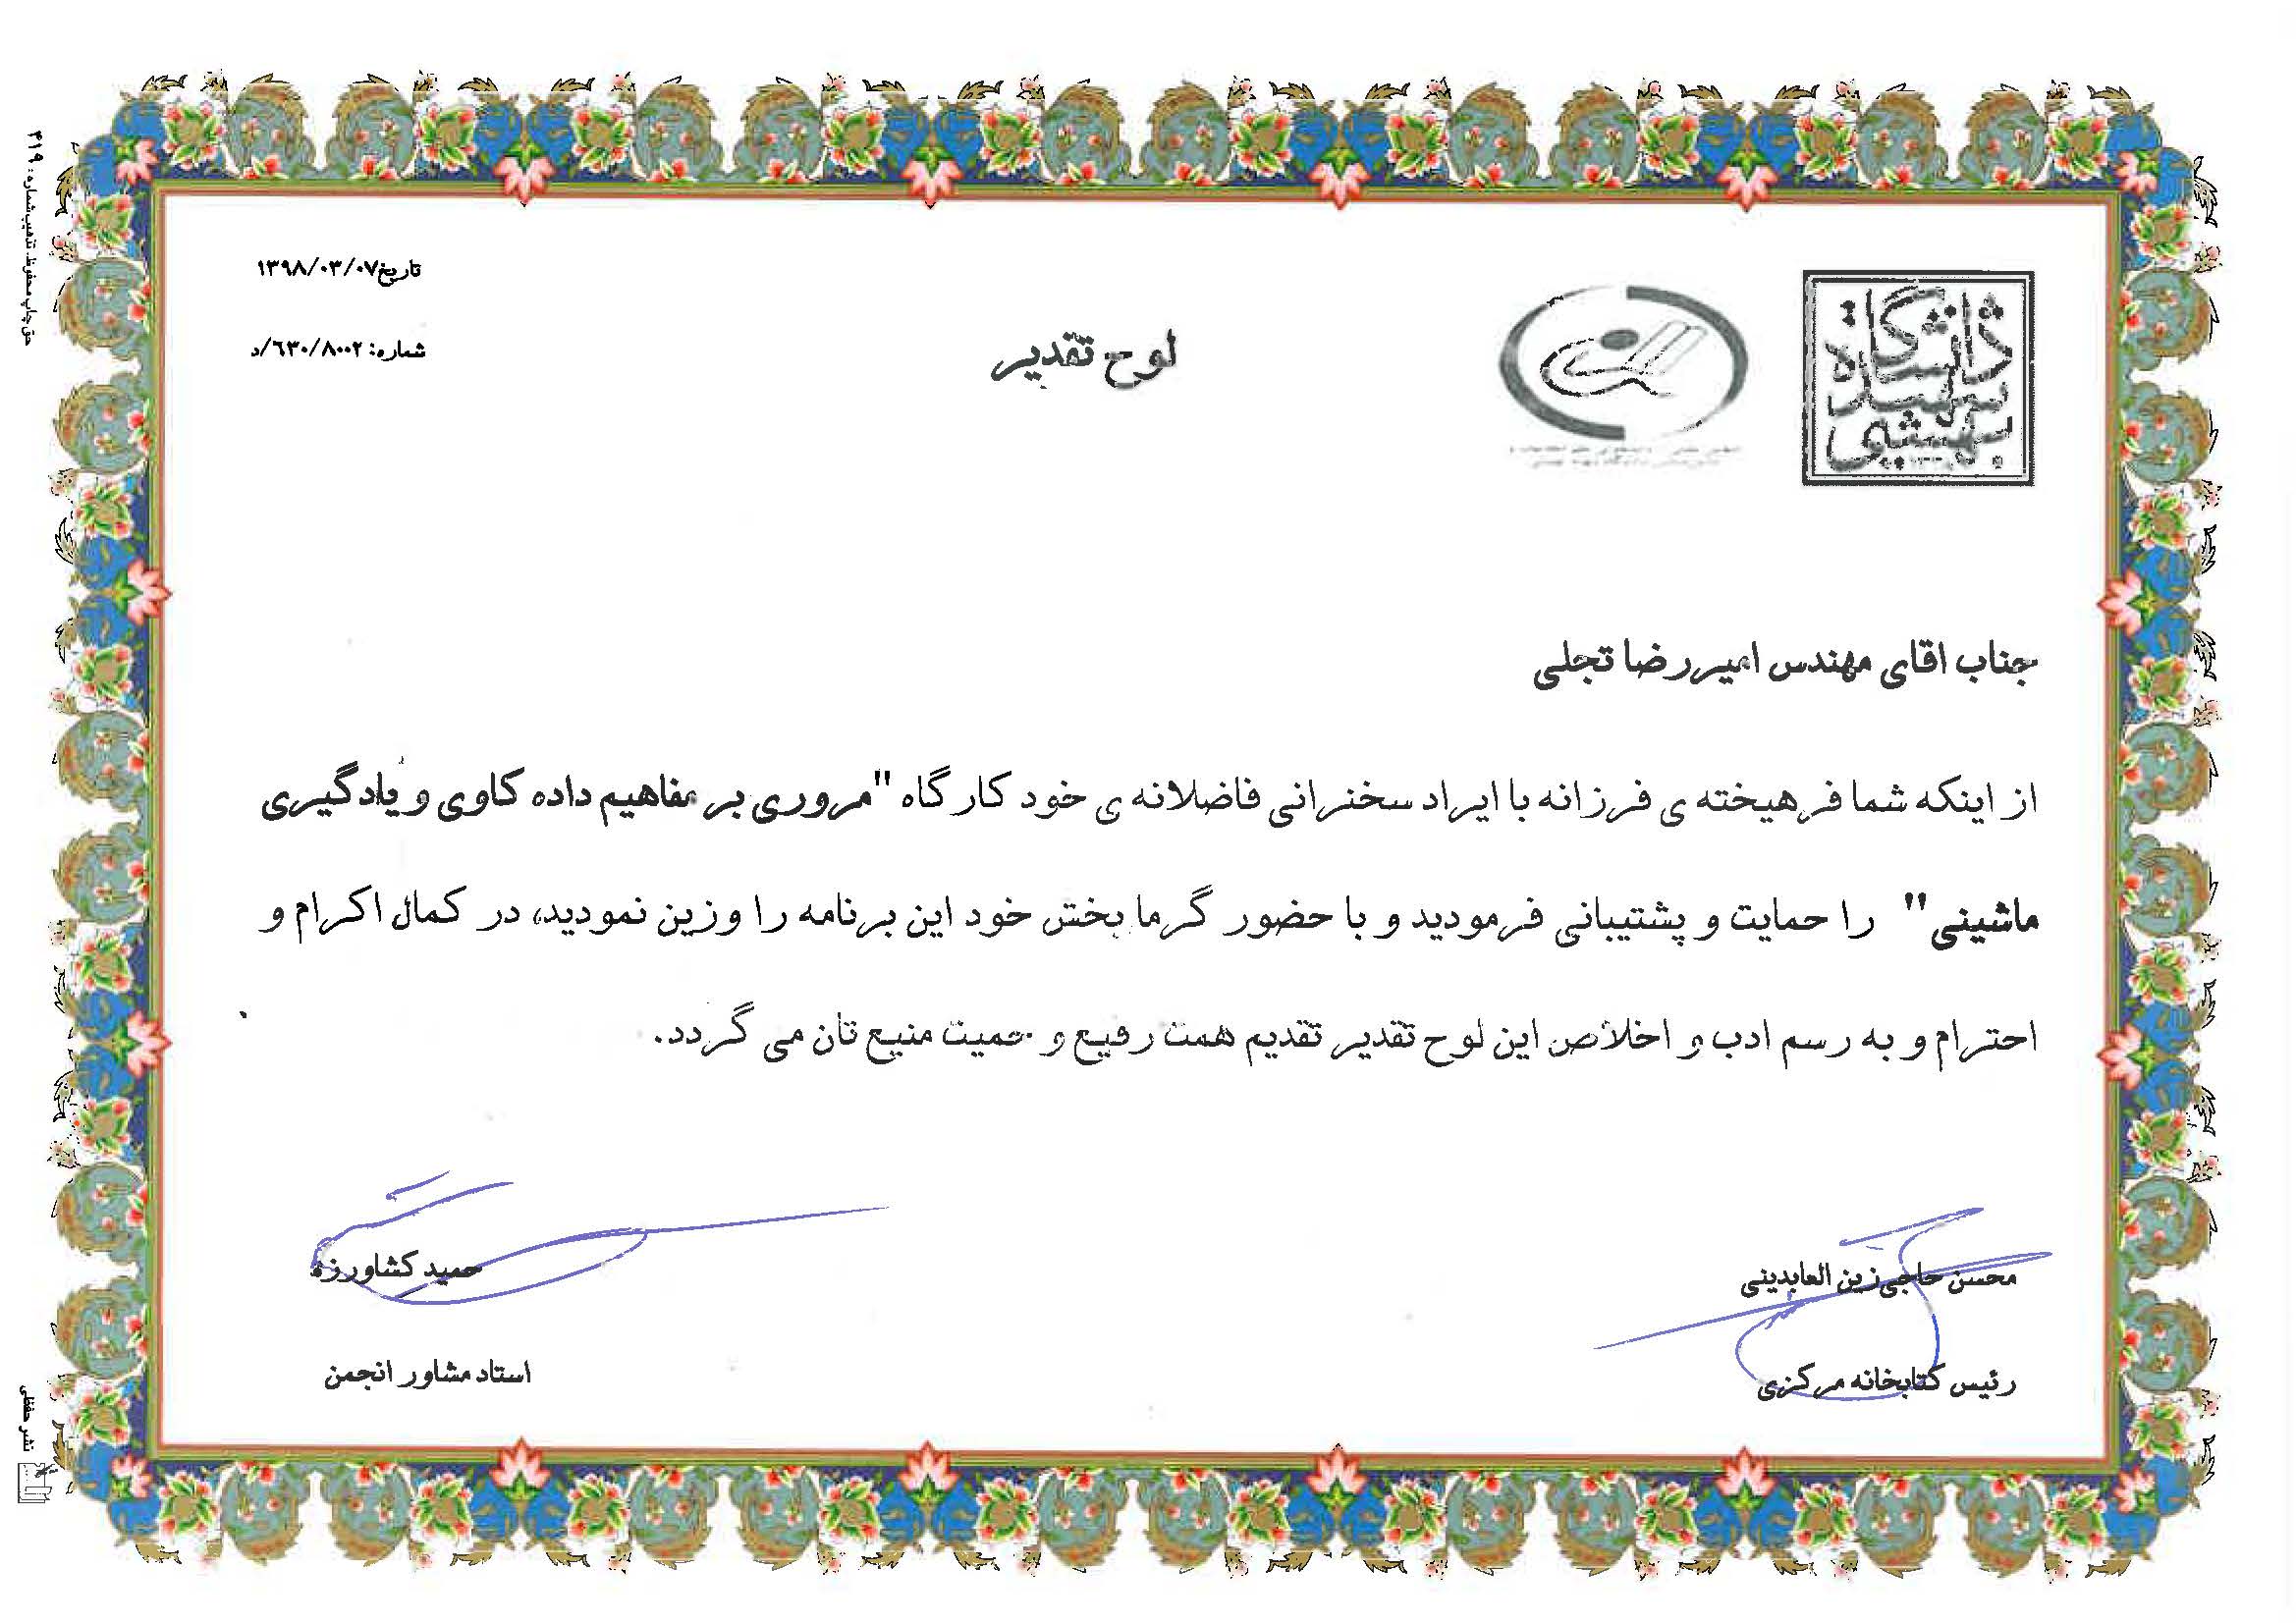 تاریخ۱۳۹۸/۰۳/۰۷
شماره: ۶۳۰/۸۰۰۲/د
دانشگاه
شهید
بهشتی
لوح تقدیر
جناب اقای مهندس امیررضا تجلی
از اینکه شما فرهیخته ی فرزانه با ایراد سخنرانی فاضلانه ی خود کارگاه "مروری بر مفاهیم داده کاوی و یادگیری
ماشینی" را حمایت و پشتیبانی فرمودید و با حضور گرما بخش خود این برنامه را وزین نمودید، در کمال اکرام و
احترام و به رسم ادب و اخلاص این لوح تقدیر تقدیم همت رفیع و حمیت منیع تان می گردد.
محسن حاجی زین العابدینی
رئیس کتابخانه مرکزی
حمید کشاورز
استاد مشاور انجمن
حق چاپ محفوظ. تذهیب شماره: ۴۱۹
نشر حفظی